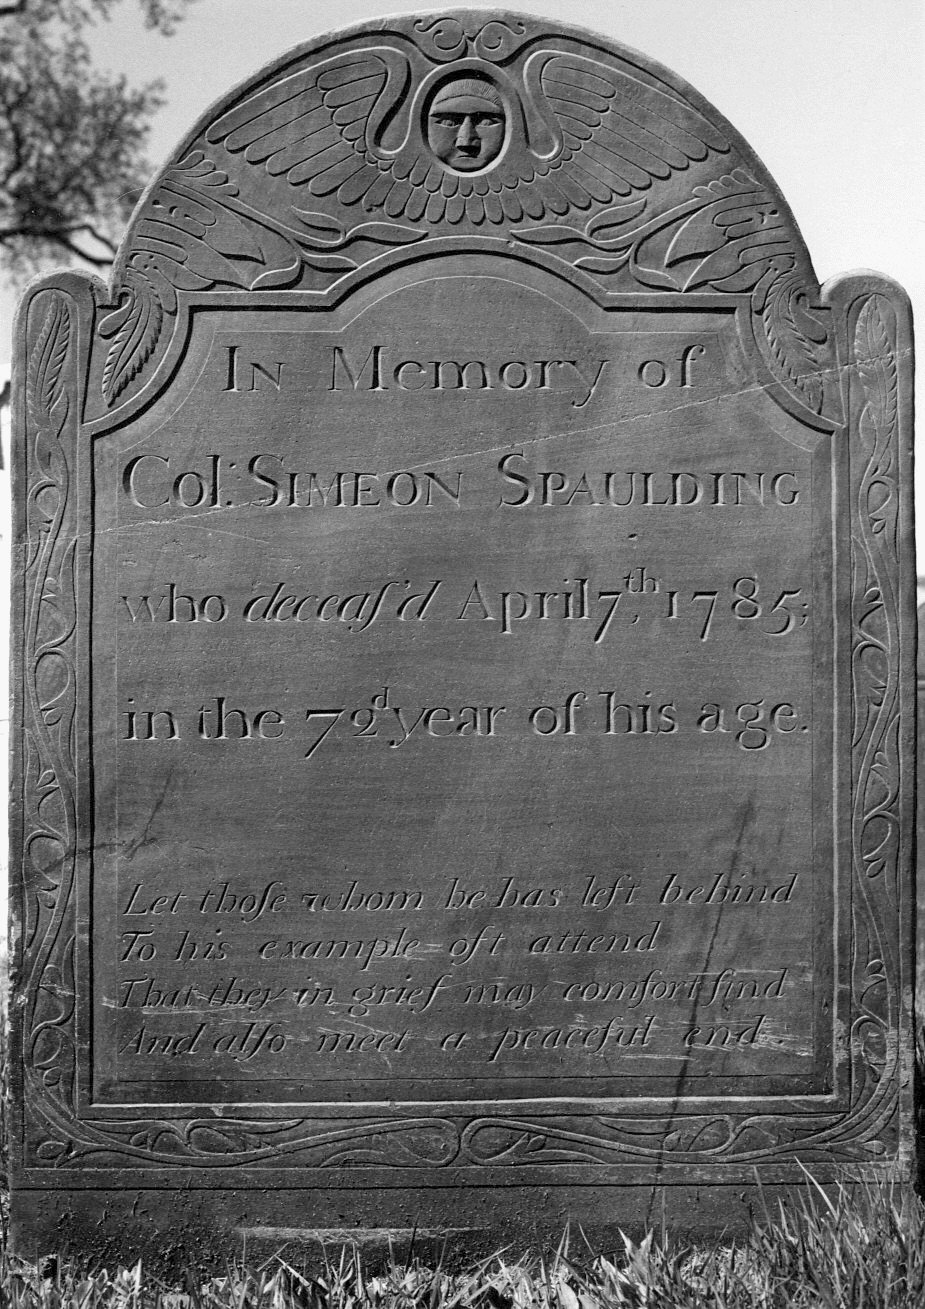 In Memory of
Col: SIMEON SPAULDING
who deceaſ'd April 7th, 1785;
in the 72d year of his age.
Let thoſe whom he has left behind
To his example oft attend
That they in grief may comfort find
And alſo meet a peaceful end.